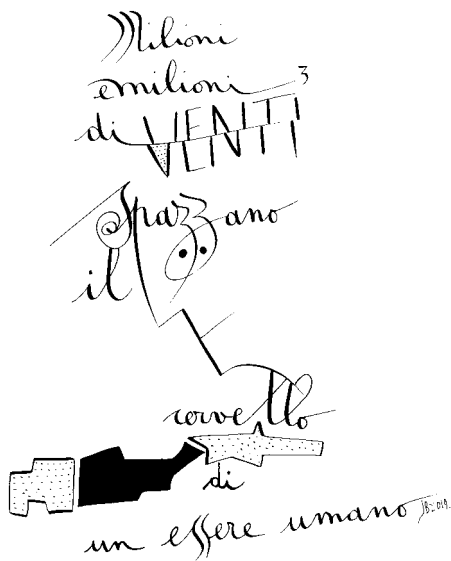 Milioni
e milioni 3
di VENTI
Spazzano
il
cervello
di
un essere umano JB=019.